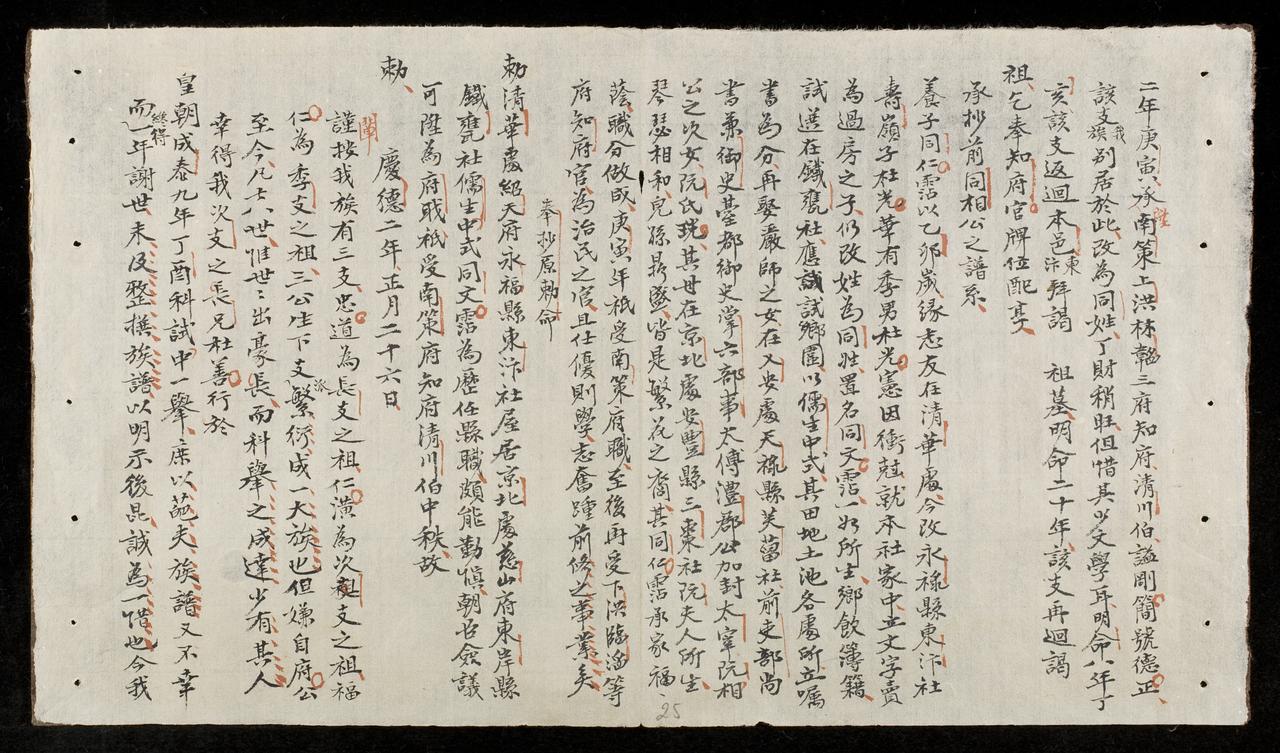 二年庚寅承陞南策上洪林韜三府知府清川伯謚剛簡號德正
該我支族别居於此改為同姓丁財稍旺但惜其少文學耳明命八年丁
亥該支返迴本邑東汴拜謁 祖墓明命二十年該支再迴謁
祖乞奉知府官牌位配享
承抄前同相公之譜系
養子同仁霑以乙卯歲緣志友在清華處今改永祿縣東汴社
壽嶺子杜光華有季男杜光憲因衝尅就本社家中立文字賣
為過房之子仍改姓為同姓置名同文霑一如所生鄉飲簿籍
試選在鐵甕社應試鄉圍以儒生中式其田地土池各處所立囑
書為分再娶嚴師之女在乂安處天祿縣芙蒥社前吏部尚
書兼御史臺都御史掌六部事太傅澧郡公加封太宰阮相
公之次女阮氏琇其世在京北處安豐縣三棗社阮夫人所生
琴瑟相和兒孫昌盛皆是繁花之裔其同仁霑承家福
蔭職分做成庚寅年祇受南策府職至後再受下洪臨洮等
府知府官為治民之官且仕優則學志奮踵前修之事業矣
奉抄原勅命
勅清華處紹天府永福縣東汴社屋居京北處慈山府東岸縣
鐵甕社儒生中式同文霑為歷任縣職頗能勤慎朝臣僉議
可陞為府職祇受南策府知府清川伯中秩故
勅
慶德二年正月二十六日
謹按我輩族有三支忠道為長支之祖仁潢為次支之祖福
仁為季支之祖三公生下支派繁衍成一大族也但嫌自府公
至今凡七八世惟世〻出豪長而科舉之成達少有其人
幸得我次支之長兄杜善行於
皇朝成泰九年丁酉科試中一舉庶以範夫族譜又不幸
而繼得一年謝世未及整撰族譜以明示後昆誠為一惜也今我
25